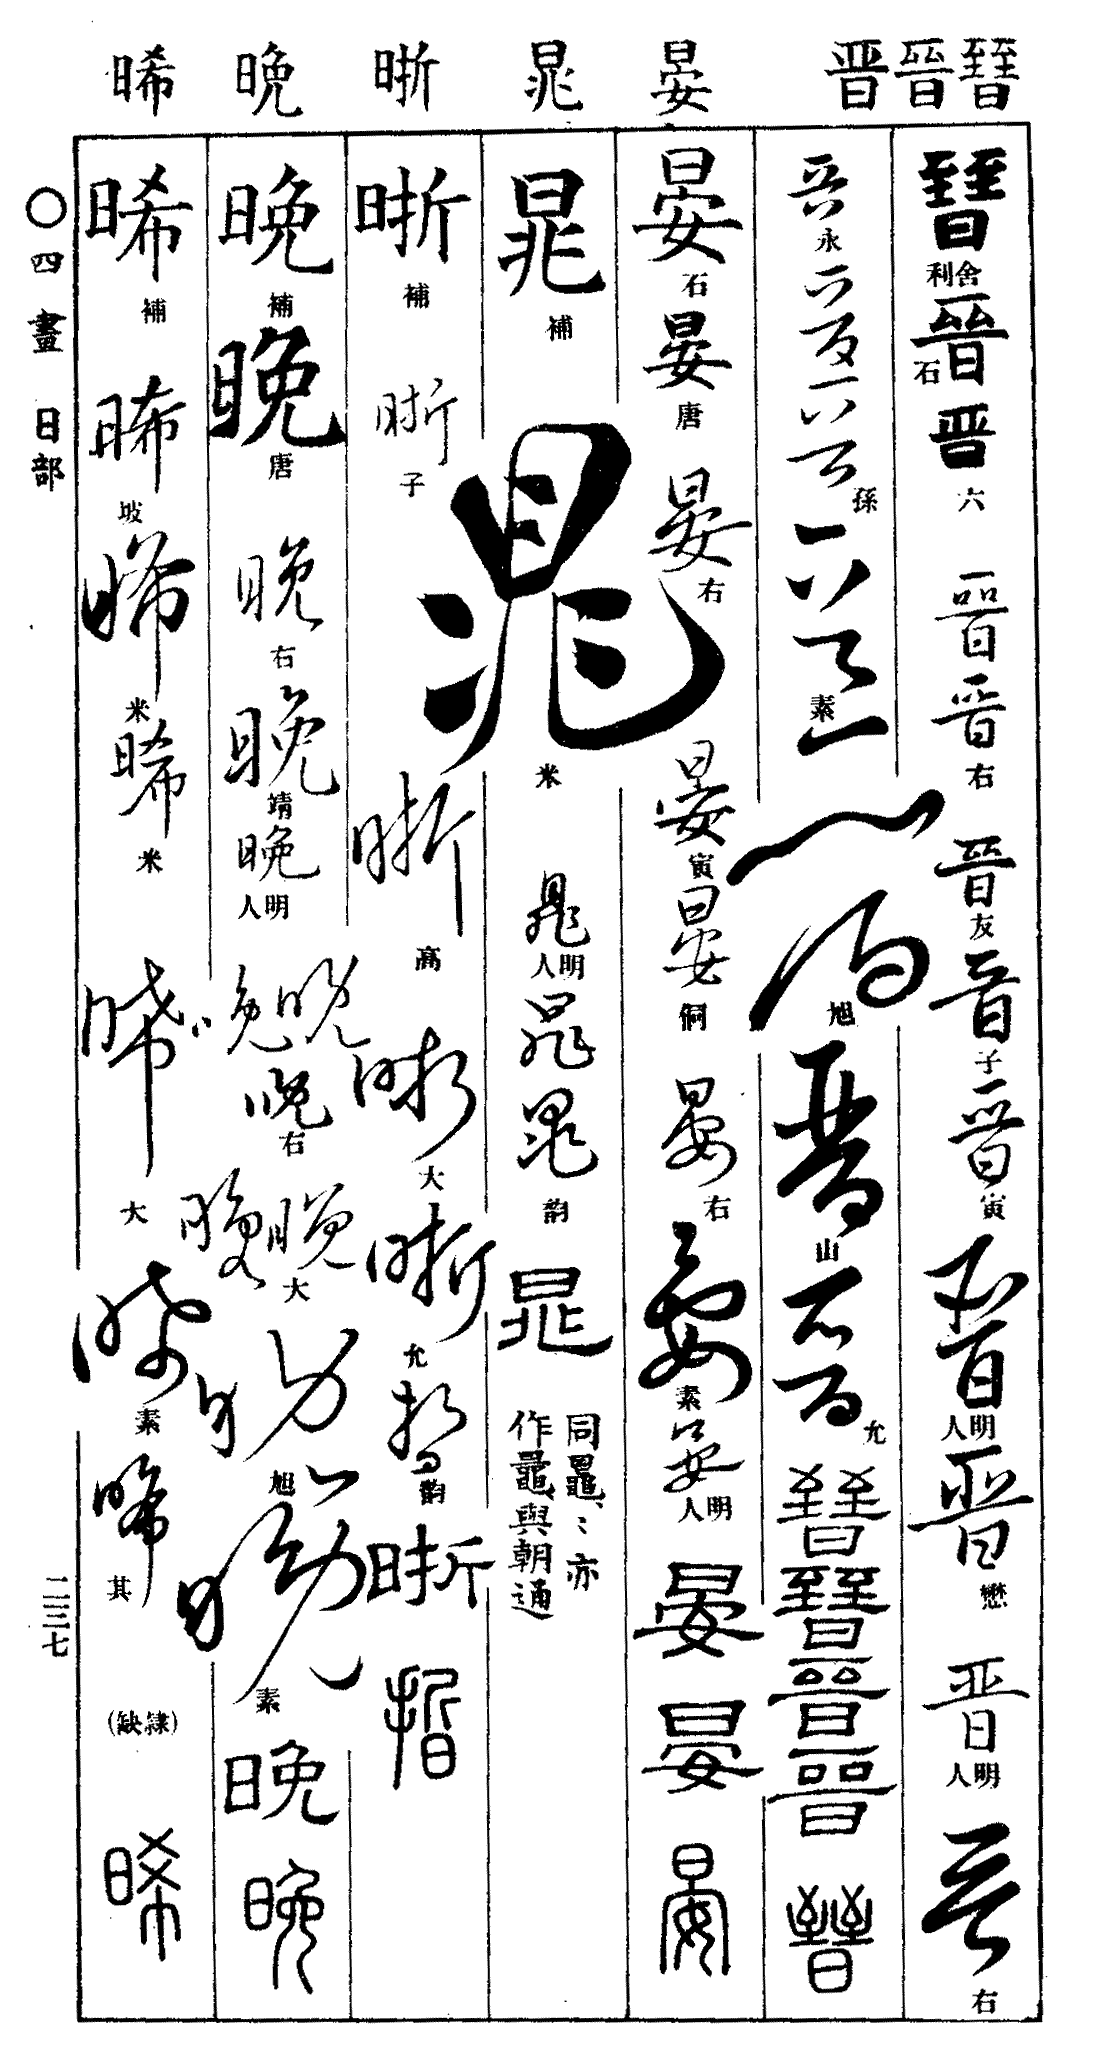 𣌭 晉 晋
晏
晁
晣
晚
晞
𣌭
利舍
晉
石
晋
六
晉
晉
右
晉
友
晉
子
晉
寅
晉
人明
晉
懋
晋
人明
晉
右
晉
永
孫
素
旭
晉
山
晉
允
𣌭
𣌭
晉
晉
𣌭
晏
石
晏
唐
晏
右
晏
寅
晏
侗
晏
右
晏
素
晏
人明
晏
晏
晏
晁
補
晁
米
晁
人明
晁
晁
韵
晁
同鼂、鼂亦
作鼌、與朝通
晣
補
晣
子
晣
高
晣
大
晣
允
晢
韵
晣
晢
晚
補
晚
唐
晚
右
晚
靖
晚
人明
晚 晚
晚
右
晚 晚
大
晚
旭
晚
素
晚
晚
晞
補
晞
坡
晞
米
晞
米
晞
大
晞
素
晞
其
(缺隸)
晞
〇四畫 日部
二三七